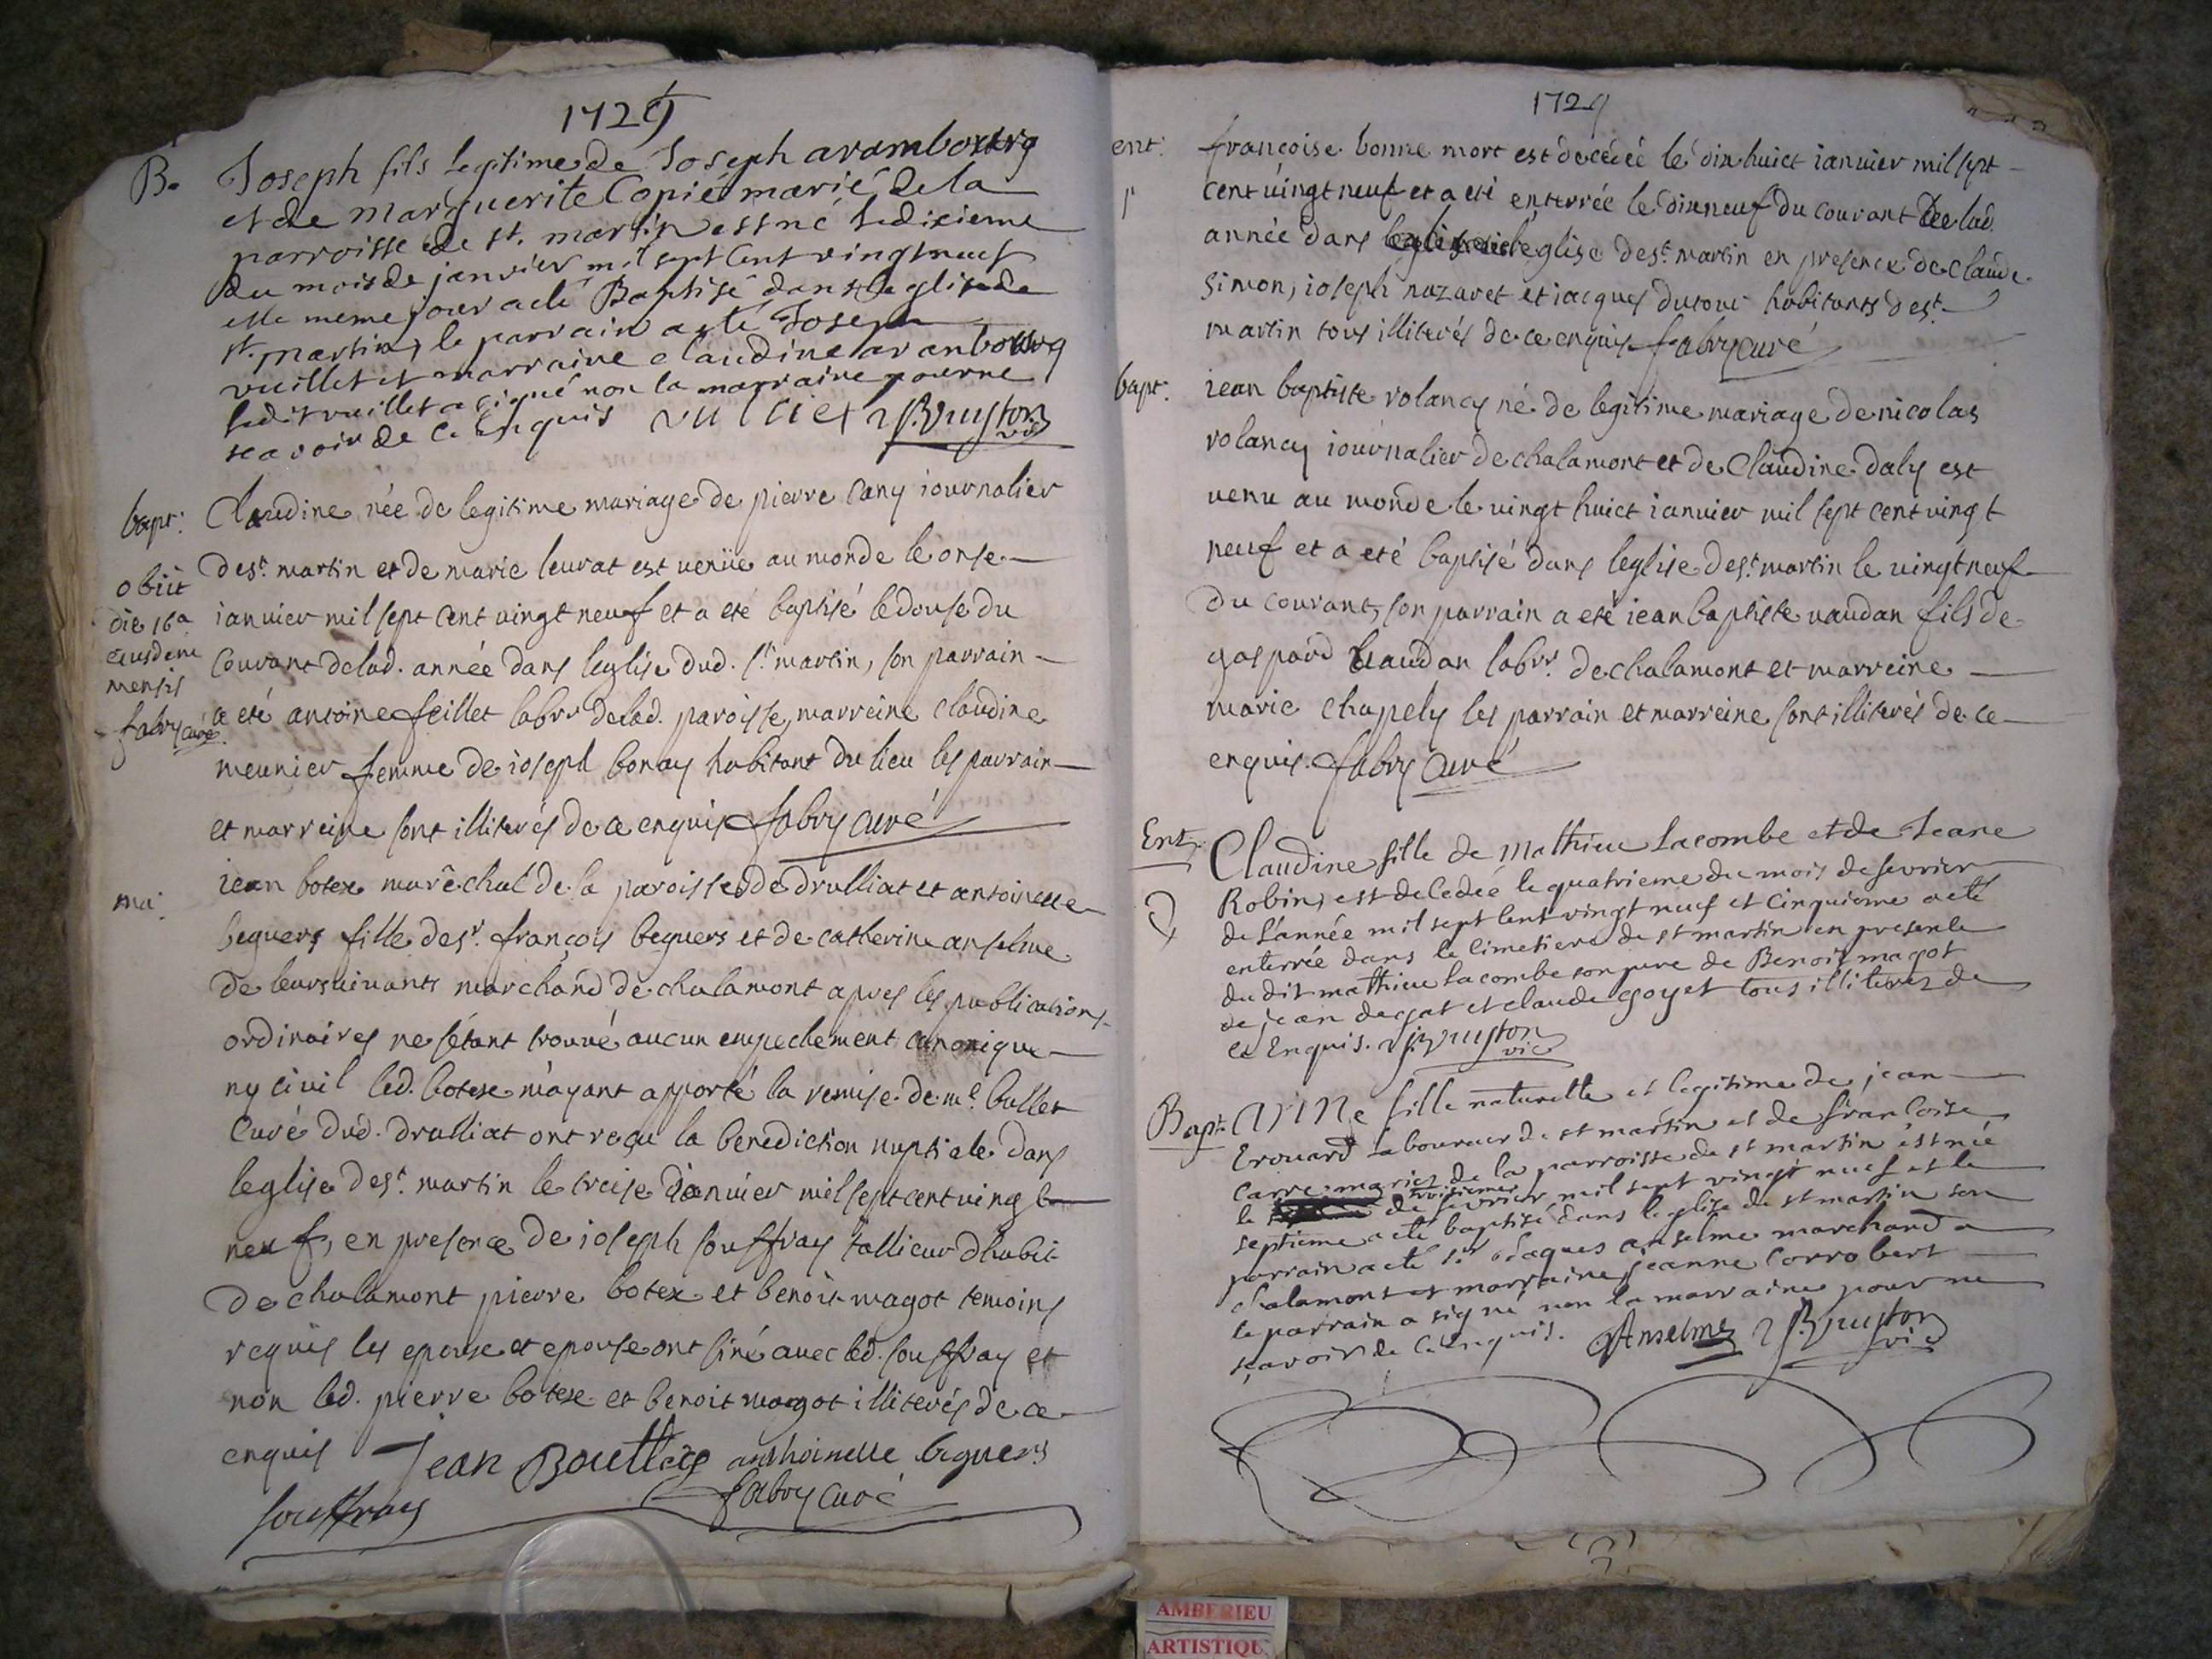 1729
B. Joseph fils legitime de Joseph arambourg
et de Marguerite Copié marié de la
parroisse de st. martin est né le dixieme
du mois de janvier mil sept cent vingt neuf
et le meme jour a eté Baptisé dans leglise de
st. martin, le parrain a eté Joseph
vuillet et marraine claudine aranbourg
ledit vuillet a signé non la marraine pour ne
scavoir de ce Enquis vulliet Bruyton vic
bapt: Claudine née de legitime mariage de pierre Cany iournalier
de st. martin et de marie leurat est venüe au monde le onse
ianvier mil sept cent vingt neuf et a eté baptisé le douse du
Courant de lad. année dans leglise dud. st. martin, son parrain
a eté antoine feillet labvr de lad. paroisse, marreine claudine
meunier femme de ioseph bonay habitant du lieu les parrain
et marreine sont illiterés de ce enquis fabry curé
obiit
die 16a
eiusdem
mensis
fabry curé
ma: iean botex maréchal de la paroisse de drulliat et antoinette
beguers fille de sr. françois beguers et de catherine anselme
de leurs vivants marchand de chalamont apres les publications
ordinaires ne sétant trouvé aucun empechement canonique
ny civil led. botex m'ayant apporté la remise de mr. bullet
Curé dud. drulliat ont reçu la benediction nuptiale dans
leglise de st. martin le treise ianvier mil sept cent vingt
neuf, en presence de ioseph souffray tallieur d'habit
de chalamont pierre botex et benoit magot temoins
requis les epouse et epouse ont siné avec led. souffray et
non led. pierre botex et benoit magot illiterés de ce
enquis Jean Bouttex anthoinette beguers
souffray fabry curé
1729
ent: françoise bonne mort est decedée le dix huict ianvier mil sept
cent vingt neuf et a eté enterrée le dixneuf du courant de lad.
année dans leglise de st. martin en presence de claude
simon, ioseph nazaret et iacques dutour habitants de st.
martin tous illiterés de ce enquis fabry curé
bapt: iean baptiste volancy né de legitime mariage de nicolas
volancy iournalier de chalamont et de Claudine daly est
venu au monde le vingt huict ianvier mil sept cent vingt
neuf et a eté baptisé dans leglise de st. martin le vingt neuf
du courant, son parrain a eté iean baptiste vaudan fils de
gaspard vaudan labvr. de chalamont et marreine
marie chapely les parrain et marreine sont illiterés de ce
enquis. fabry Curé
Ent. Claudine fille de Mathieu Lacombe et de Jeane
Robin, est decedée le quatrieme du mois de fevrier
de l'année mil sept cent vingt neuf et cinquieme a eté
enterrée dans le cimetiere de st martin en presence
du dit mathieu Lacombe son pere de Benoit magot
de jean degat et claude goyet tous illiterez de
ce Enquis. Bruyton vic
Bapt. Anne fille naturelle et legitime de jean
Erouard Laboureur de st martin et de françoise
Carre mariez de la parroisse de st martin est née
le troisieme de fevrier mil sept vingt neuf et le
septieme a eté baptisé dans leglise de st martin son
parrain a eté sr. Jaques anselme marchand a
chalamont et marraine jeanne Corrobert
le parrain a signé non la marraine pour ne
sçavoir de ce Enquis. Anselme Bruyton vic
AMBERIEU
ARTISTIQU